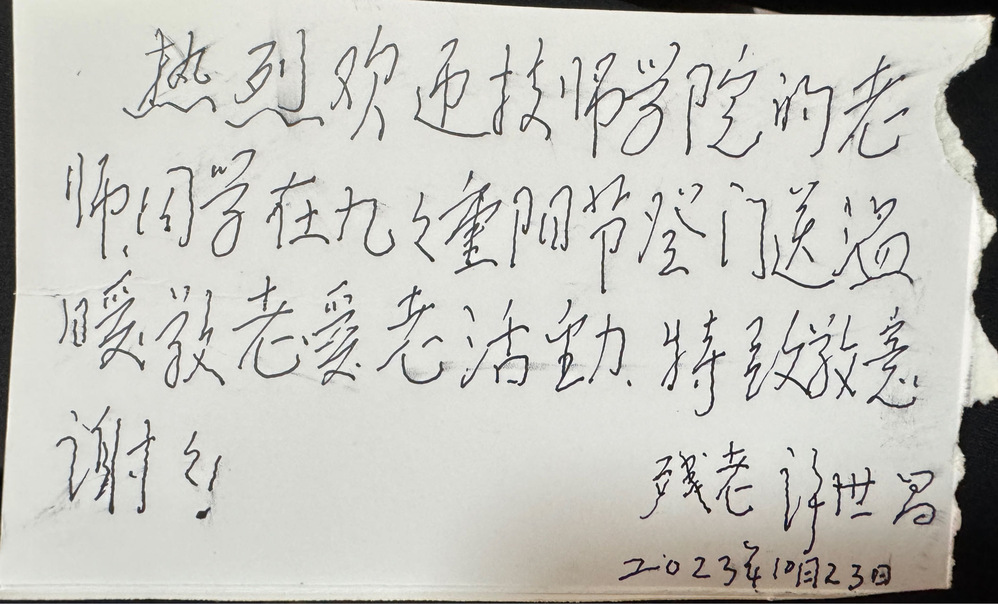 热烈欢迎技师学院的老
师、同学在九々重阳节登门送温
暖敬老爱老活動、特致敬意
谢々!
残老 许世昌
2023年10月23日